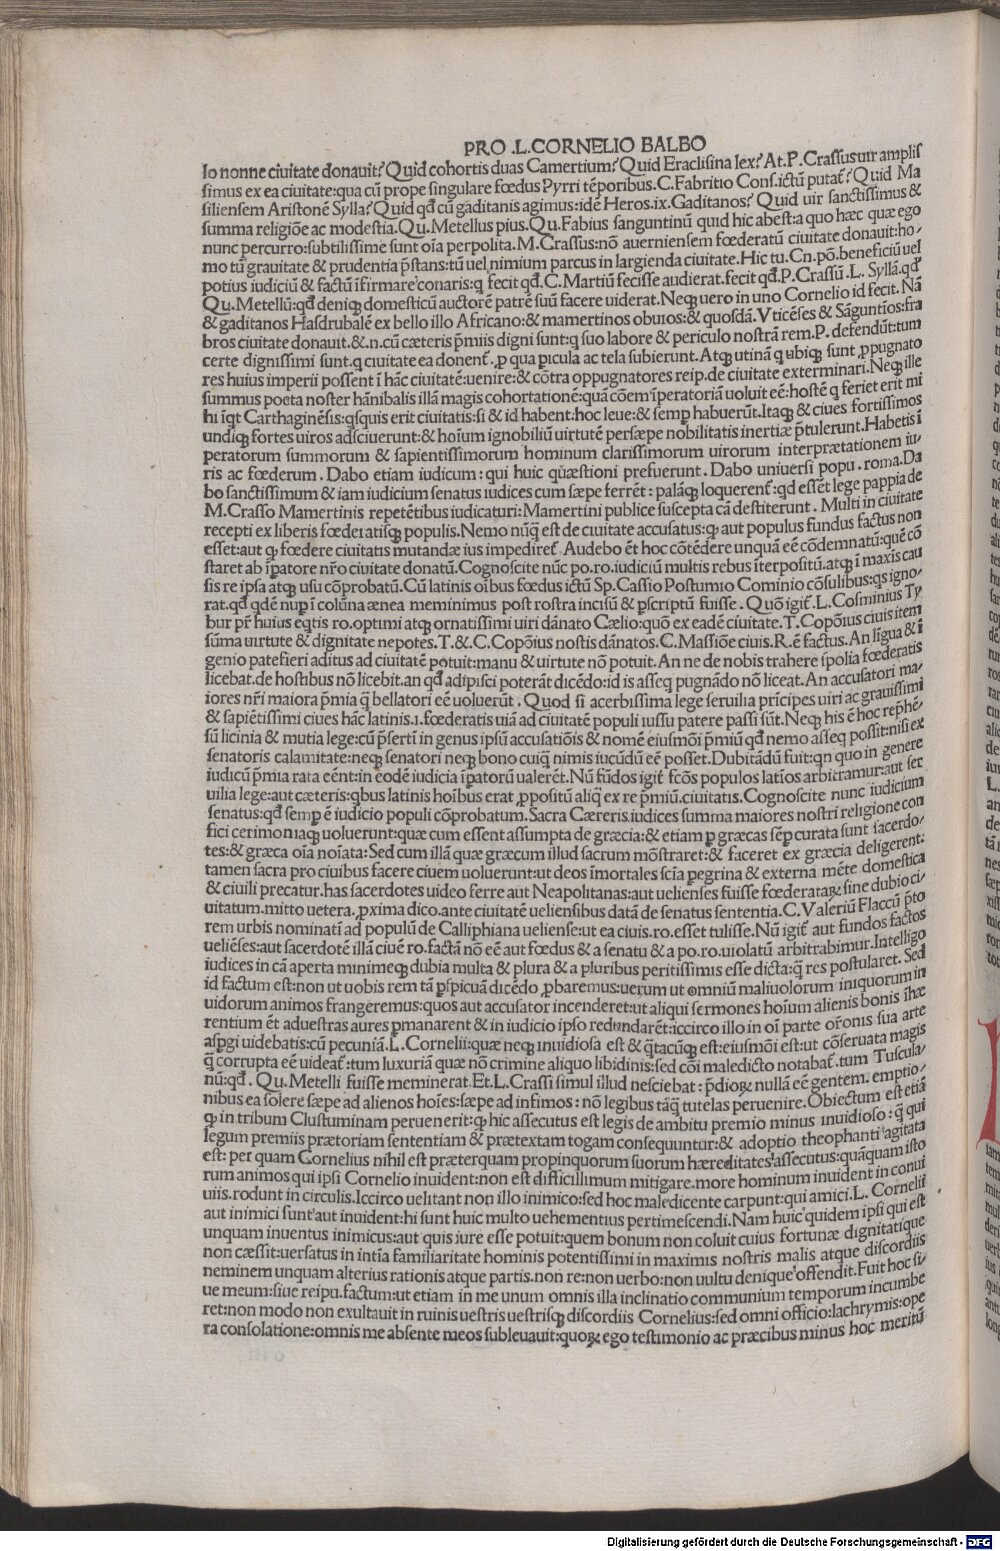 PRO .L.CORNELIO BALBO
lo nonne ciuitate donauit? Quid cohortis duas Camertium? Quid Eraclisina lex? At.P.Crassus uir amplis
simus ex ea ciuitate:qua cũ prope singulare fœdus Pyrri tẽporibus.C.Fabritio Cons.ictũ putat̃? Quid Ma
siliensem Aristonẽ Sylla? Quid qd̃ cũ gaditanis agimus:idẽ Heros.ix.Gaditanos? Quid uir sanctissimus &
summa religiõe ac modestia.Qu.Metellus pius.Qu.Fabius sanguntinũ quid hic abest:a quo hæc quæ ego
nunc percurro:subtilissime sunt oĩa perpolita.M.Crassus:nõ auerniensem fœderatũ ciuitate donauit:ho/
mo tũ grauitate & prudentia p̃stans:tũ uel nimium parcus in largienda ciuitate.Hic tu.Cn.põ.beneficiũ uel
potius iudiciũ & factũ ĩfirmare conaris:q̃ fecit qd̃.C.Martiũ fecisse audierat.fecit qd̃.P.Crassũ.L.Syllã.qd̃
Qu.Metellũ:qd̃ deniqꝫ domesticũ auctorẽ patrẽ suũ facere uiderat.Neqꝫ uero in uno Cornelio id fecit.Nã
& gaditanos Hasdrubalẽ ex bello illo Africano:& mamertinos obuios:& quosdã.Vticẽses & Sãguntĩos:fra
bros ciuitate donauit.&.n.cũ cæteris p̃miis digni sunt:q suo labore & periculo nostrã rem.P.defendũt:tum
certe dignissimi sunt.q ciuitate ea donent̃.ꝓ qua ꝑicula ac tela subierunt.Atqꝫ utinã q ubiqꝫ sunt ꝓpugnato
res huius imperii possent ĩ hãc ciuitatẽ:uenire:& cõtra oppugnatores reip.de ciuitate exterminari.Neqꝫ ille
summus poeta noster hãnibalis illã magis cohortationẽ:qua cõem ĩperatoriã uoluit eẽ:hostẽ q feriet erit mi
hi ĩqt Carthaginẽsis:qsquis erit ciuitatis:si & id habent:hoc leue:& semꝑ habuerũt.Itaqꝫ & ciues fortissimos
undiqꝫ fortes uiros adsciuerunt:& hoĩum ignobiliũ uirtutẽ persæpe nobilitatis inertiæ p̃tulerunt.Habetis ĩ
peratorum summorum & sapientissimorum hominum clarissimorum uirorum interprætationem iu/
ris ac fœderum. Dabo etiam iudicum : qui huic quæstioni prefuerunt. Dabo uniuersi popu. roma.Da
bo sanctissimum & iam iudicium senatus iudices cum sæpe ferrẽt : palãqꝫ loquerent̃:qd essẽt lege pappia de
M.Crasso Mamertinis repetẽtibus iudicaturi:Mamertini publice suscepta cã destiterunt . Multi in ciuitate
recepti ex liberis fœderatisqꝫ populis.Nemo nũq̃ est de ciuitate accusatus:ꝙ aut populus fundus factus non
esset:aut ꝙ fœdere ciuitatis mutandæ ius impediret̃. Audebo ẽt hoc cõtẽdere unquã eẽ cõdemnatũ:quẽ cõ
staret ab ĩpatore nr̃o ciuitate donatũ.Cognoscite nũc po.ro.iudiciũ multis rebus ĩterpositũ.atqꝫ ĩ maxĩs cau
sis re ipsa atqꝫ usu cõprobatũ.Cũ latinis oĩbus fœdus ictũ Sp.Cassio Postumio Cominio cõsulibus:qs igno/
rat.qd̃ qdẽ nuꝑ ĩ colũna ænea meminimus post rostra incisũ & ꝑscriptũ fuisse . Quõ igit̃.L.Cosminius Ty
bur pr̃ huius eqtis ro.optimi atqꝫ ornatissimi uiri dãnato Cælio:quõ ex eadẽ ciuitate.T.Copõius ciuis item
sũma uirtute & dignitate nepotes.T.&.C.Copõius nostis dãnatos.C.Massiõe ciuis.R.ẽ factus.An lĩgua & ĩ
genio patefieri aditus ad ciuitatẽ potuit:manu & uirtute nõ potuit.An ne de nobis trahere spolia fœderatis
licebat.de hostibus nõ licebit.an qd̃ adipisci poterãt dicẽdo:id is asseq pugnãdo nõ liceat.An accusatori ma/
iores nr̃i maiora p̃mia q̃ bellatori eẽ uoluerũt . Quod si acerbissima lege seruilia prĩcipes uiri ac grauissimi
& sapiẽtissimi ciues hãc latinis.ı.fœderatis uiã ad ciuitatẽ populi iussu patere passi sũt.Neqꝫ his ẽ hoc rep̃hẽ/
sũ licinia & mutia lege:cũ p̃sertĩ in genus ipsũ accusatiõis & nomẽ eiusmõi p̃miũ qd̃ nemo asseq possit:nisi ex
senatoris calamitate:neqꝫ senatori neqꝫ bono cuiq̃ nimis iucũdũ eẽ posset.Dubitãdũ fuit:qn quo in genere
iudicũ p̃mia rata eẽnt:in eodẽ iudicia ĩpatorũ ualerẽt.Nũ fũdos igit̃ fc̃os populos latĩos arbitramur:aut ser
uilia lege:aut cæteris:qbus latinis hoĩbus erat ꝓpositũ aliq̃ ex re p̃miũ.ciuitatis.Cognoscite nunc iudicium
senatus:qd̃ semꝑ ẽ iudicio populi cõprobatum.Sacra Cæreris.iudices summa maiores nostri religione con
fici cerimoniaqꝫ uoluerunt:quæ cum essent assumpta de græcia:& etiam ꝑ græcas sẽꝑ curata sunt sacerdo/
tes:& græca oĩa noĩata:Sed cum illã quæ græcum illud sacrum mõstraret:& faceret ex græcia deligerent:
tamen sacra pro ciuibus facere ciuem uoluerunt:ut deos ĩmortales scĩa ꝑegrina & externa mẽte domestica
& ciuili precatur.has sacerdotes uideo ferre aut Neapolitanas:aut uelienses fuisse fœderataꝝ:sine dubio ci/
uitatum.mitto uetera.ꝓxima dico.ante ciuitatẽ ueliensibus datã de senatus sententia.C.Valeriũ Flaccũ p̃to
rem urbis nominatĩ ad populũ de Calliphana ueliense:ut ea ciuis.ro.esset tulisse.Nũ igit̃ aut fundos factos
ueliẽses:aut sacerdotẽ illã ciuẽ ro.factã nõ eẽ aut fœdus & a senatu & a po.ro.uiolatũ arbitrabimur.Intelligo
iudices in cã aperta minimeqꝫ dubia multa & plura & a pluribus peritissimis esse dicta:q̃ res postularet. Sed
id factum est:non ut uobis rem tã ꝑspicuã dicẽdo ꝓbaremus:uerum ut omniũ maliuolorum iniquorum in
uidorum animos frangeremus:quos aut accusator incenderet:ut aliqui sermones hoĩum alienis bonis ĩhæ
rentium ẽt aduestras aures ꝑmanarent & in iudicio ipso redundarẽt:iccirco illo in oĩ parte or̃onis sua arte
asꝑgi uidebatis:cũ pecuniã.L.Cornelii:quæ neqꝫ inuidiosa est & q̃tacũqꝫ est:eiusmõi est:ut cõseruata magis
q̃ corrupta eẽ uideat̃:tum luxuriã quæ nõ crimine aliquo libidinis:sed cõi maledicto notabat̃.tum Tuscula/
nũ:qd̃ . Qu.Metelli fuisse meminerat.Et.L.Crassi simul illud nesciebat : p̃dioꝝ nullã eẽ gentem. emptio/
nibus ea solere sæpe ad alienos hoĩes:sæpe ad infimos : nõ legibus tãq̃ tutelas peruenire.Obiectum est etiã
ꝙ in tribum Clustuminam peruenerit:ꝙ hic assecutus est legis de ambitu premio minus inuidioso : q̃ qui
legum premiis prætoriam sententiam & prætextam togam consequuntur:& adoptio theophanti agitata
est: per quam Cornelius nihil est præterquam propinquorum suorum hæreditates assecutus:quãquam isto
rum animos qui ipsi Cornelio inuident:non est difficillumum mitigare.more hominum inuident in conui
uiis.rodunt in circulis.Iccirco uelitant non illo inimico:sed hoc maledicente carpunt:qui amici.L. Cornelii
aut inimici sunt aut inuident:hi sunt huic multo uehementius pertimescendi.Nam huic quidem ipsi qui est
unquam inuentus inimicus:aut quis iure esse potuit:quem bonum non coluit cuius fortunæ dignitatique
non cæssit:uersatus in intĩa familiaritate hominis potentissimi in maximis nostris malis atque discordiis
neminem unquam alterius rationis atque partis.non re:non uerbo:non uultu denique offendit.Fuit hoc si/
ue meum:siue reipu.factum:ut etiam in me unum omnis illa inclinatio communium temporum incumbe
ret:non modo non exultauit in ruinis uestris uestrisqꝫ discordiis Cornelius:sed omni officio:lachrymis:ope
ra consolatione:omnis me absente meos subleuauit:quoꝝ ego testimonio ac præcibus minus hoc meritũ
Digitalisierung gefördert durch die Deutsche Forschungsgemeinschaft - DFG